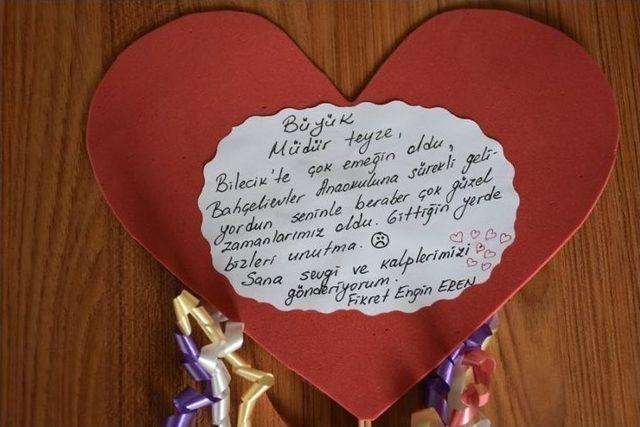 Büyük
Müdür teyze,
Bilecik'te çok emeğin oldu,
Bahçelievler Anaokuluna sürekli geli-
yordun seninle beraber çok güzel
zamanlarımız oldu. Gittiğin yerde
bizleri unutma.
Sana sevgi ve kalplerimizi
gönderiyorum.
Fikret Engin EREN